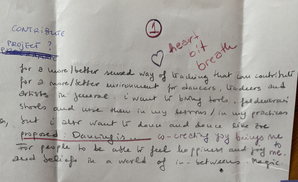 CONTRIBUTE
PROJECT?
1
heart
bit
breath
for a more/better sensed way of teaching that can contribute
for a more/better environment for dancers, teachers and
artists in general. i want to bring tools,
and use them in my lessons/in my practices
but i also want to dance and dance like are
proposed Dancing is co-creating joy brings me
For people to be able to feel happiness and joy
and beliefs in a world of in-between magic